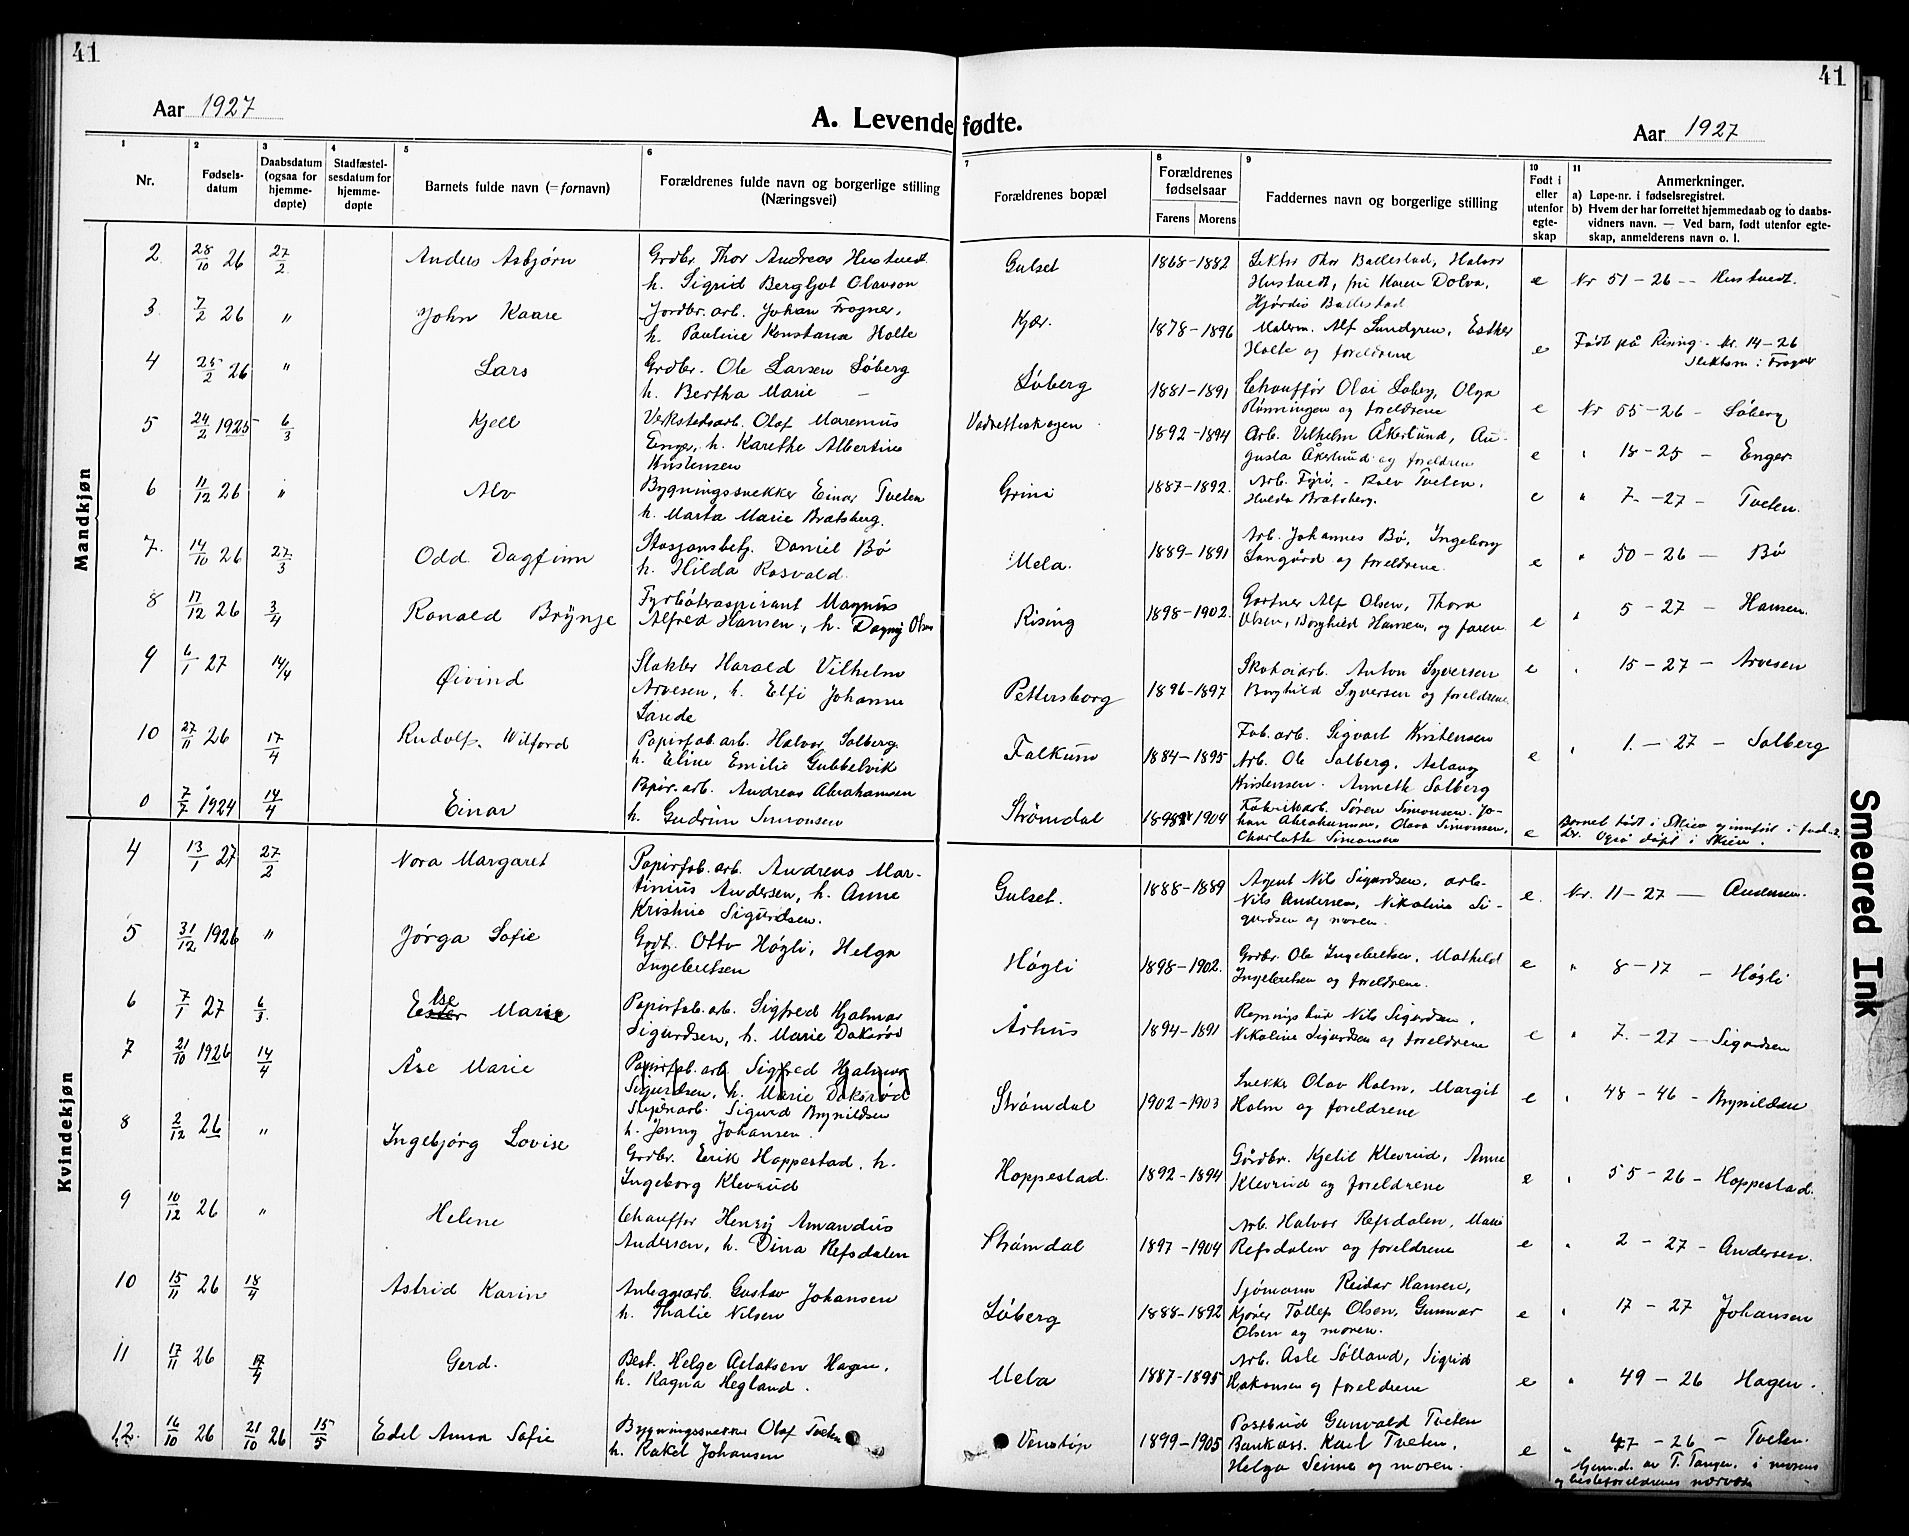 41
41
Aar 1927
A. Levendefødte.
Aar 1927
1
Nr.
2
Fødsels-
datum
3
Daabsdatum
(ogsaa for
hjemme-
døpte)
4
Stadfæstel-
sesdatum for
hjemme-
døpte
5
Barnets fulde navn (=fornavn)
6
Forældrenes fulde navn og borgerlige stilling
(Næringsvei)
7
Forældrenes bopæl
8
Forældrenes
fødselsaar
Farens Morens
9
Faddernes navn og borgerlige stilling
10
Født i
eller
utenfor
egte-
skap
11
Anmerkninger.
a) Løpe-nr. i fødselsregistret.
b) Hvem der har forrettet hjemmedaab og to daabs-
vidners navn. — Ved barn, født utenfor egte-
skap, anmelderens navn o. l.
Mandkjøn
2 28/10 26 27/2 Anders Asbjørn
Grdbr. Thor Andreas Hustvedt
h. Sigrid Bergljot Olavson
Gulset 1868-1882
Lektor Thor Ballestad, Halvor
Hustvedt, fru Karen Dolva,
Hjørdis Ballestad
e Nr 51-26 -- Hustvedt.
3. 7/2 26 " John Kaare
Jordbr. arb. Johan Frogner,
h. Pauline Konstanse Holte
Kjær. 1878-1896
Malerm. Alf Lundgren, Esther
Holte og foreldrene
e Født på Rising. Nr. 14-26
Slektsn: Frogner
4 25/2 26 " Lars
Grdbr. Ole Larsen Løberg
h. Bertha Marie —
Løberg 1881-1891
Chauffør Olai Løberg, Olga
Rønningen og foreldrene
e Nr 55-26 - Løberg
5 24/2 1925 6/3 Kjell
Verkstedsarb. Olaf Marenius
Enger, h. Karethe Albertine
Kristensen
Vadretteskogen 1892-1894
Arb. Vilhelm Åkerlund, Au-
gusta Åkerlund og foreldrene
e " 18-25 - Enger
6 11/12 26 " Alv
Bygningssnekker Einar Tveten
h. Marta Marie Bratsberg.
Grini 1887-1892.
Hulda Bratsberg.
e " 7.-27 - Tveten.
7. 14/10 26 27/3 Odd Dagfinn
Stasjonsbetj. Daniel Bø
h. Hilda Rosvald.
Mela. 1889-1891
Arb. Johannes Bø, Ingeborg
Langård og foreldrene.
e " 50-26 — Bø
8 17/12 26 3/4 Ronald Brynje
Fyrbøteraspirant Magnus
Alfred Hansen, h. Dagny Olsen
Rising 1898-1902.
Gartner Alf Olsen, Thora
Olsen, Borghild Hansen, og faren
e " 5-27 - Hansen.
9 6/1 27 14/4 Øivind
Stakler Harald Vilhelm
Arvesen, h. Elfi Johanne
Lande
Pettersborg 1896-1897
Skotøiarb. Anton Syversen
Borghild Syversen og foreldrene.
e " 15-27 - Arvesen
10 27/11 26 17/4 Rudolf Wilford
Papirfab. arb. Halvor Solberg.
h. Eline Emilie Gubbelvik
Falkum 1884-1895
Fab. arb. Sigvart Kristensen
Arb. Ole Solberg, Aslaug
Kristensen. Anneth Solberg
e " 1.-27 - Solberg
0 7/7 1924 14/4 Einar
Andreas Abrahamsen
h. Gudrun Simonsen
Strømdal 1904
Fabrikkarb. Søren Simonsen. Jo-
han Abrahamsen, Olava Simonsen,
Charlotte Simonsen
e Barnet født i Skien og innført i
dr. Også døpt i Skien.
Kvindekjøn
4 13/1 27 27/2 Nora Margaret
Papirfab. arb. Andreas Mar-
tinius Andersen, h. Anne
Kristine Sigurdsen.
Gulset. 1888-1889
Agent Nils Sigurdsen, arb.
Nils Andersen, Nikoline Si-
gurdsen og moren.
e. Nr. 11-27 — Andersen.
5 31/12 1926 " Jørga Sofie
Grdb. Otto Høgli, Helga
Ingebretsen
Høgli 1898-1902.
Grdbr. Ole Ingebretsen, Mathild
Ingebretsen og foreldrene.
e " 8-17 - Høgli
6 7/1 27 6/3. Else Marie
Papirfab. arb. Sigfred Hjalmar
Sigurdsen, h. Marie Doksrød
Århus 1894-1891
Nils Sigurdsen,
Nikoline Sigurdsen og foreldrene
e " 7.-27 - Sigurdsen
7 21/10 1926 14/4 Åse Marie
Papirfab. arb. Sigfred Hjalmar
Sigurdsen, h. Marie Doksrød
Sliperiarb. Sigurd Brynildsen
h. Jenny Johansen.
Strømdal 1902-1903
Snekker Olav Holm, Margit
Holm og foreldrene
e " 48-46 - Brynildsen
8 2/12 26 " Ingebjørg Lovise
Grdbr. Erik Hoppestad, h.
Ingeborg Klevrud
Hoppestad. 1892-1894
Gårdbr. Kjetil Klevrud, Anne
Klevrud og foreldrene
e " 55-26 - Hoppestad.
9 10/12 26 " Helene
Chauffør Henry Amandus
Andersen, h. Dina Refsdalen
Strømdal 1897-1904
Arb. Halvor Refsdalen, Marie
Refsdalen og foreldrene
e " 2-27 - Andersen.
10 15/11 26 18/4 Astrid Karin
Anleggsarb. Gustav Johansen
h. Thalie Nilsen
Løberg 1888-1892
Sjømann Reidar Hansen,
Kjører Tollef Olsen, Gunnar
Olsen og moren.
e " 17-27 Johansen
11 17/11 26 17/4 Gerd.
Best. Helge Aslaksen Hagen,
h. Ragna Hegland.
Mela 1887-1895
Arb. Asle Sølland, Sigrid
Håkonsen og foreldrene
e " 49-26 Hagen.
12. 16/10 26 21/10 26 15/5 Edel Anna Sofie
Bygningssnekker Olaf Tveten
h. Rakel Johansen
Venstøp 1899-1905
Postbud Gunvald Tveten
Bankass. Karl Tveten,
Helga Seime og moren.
e " 47-26 - Tveten.
Hjem.d. av T. Tangen, i morens
og besteforeldrenes nærvær
Smeared Ink